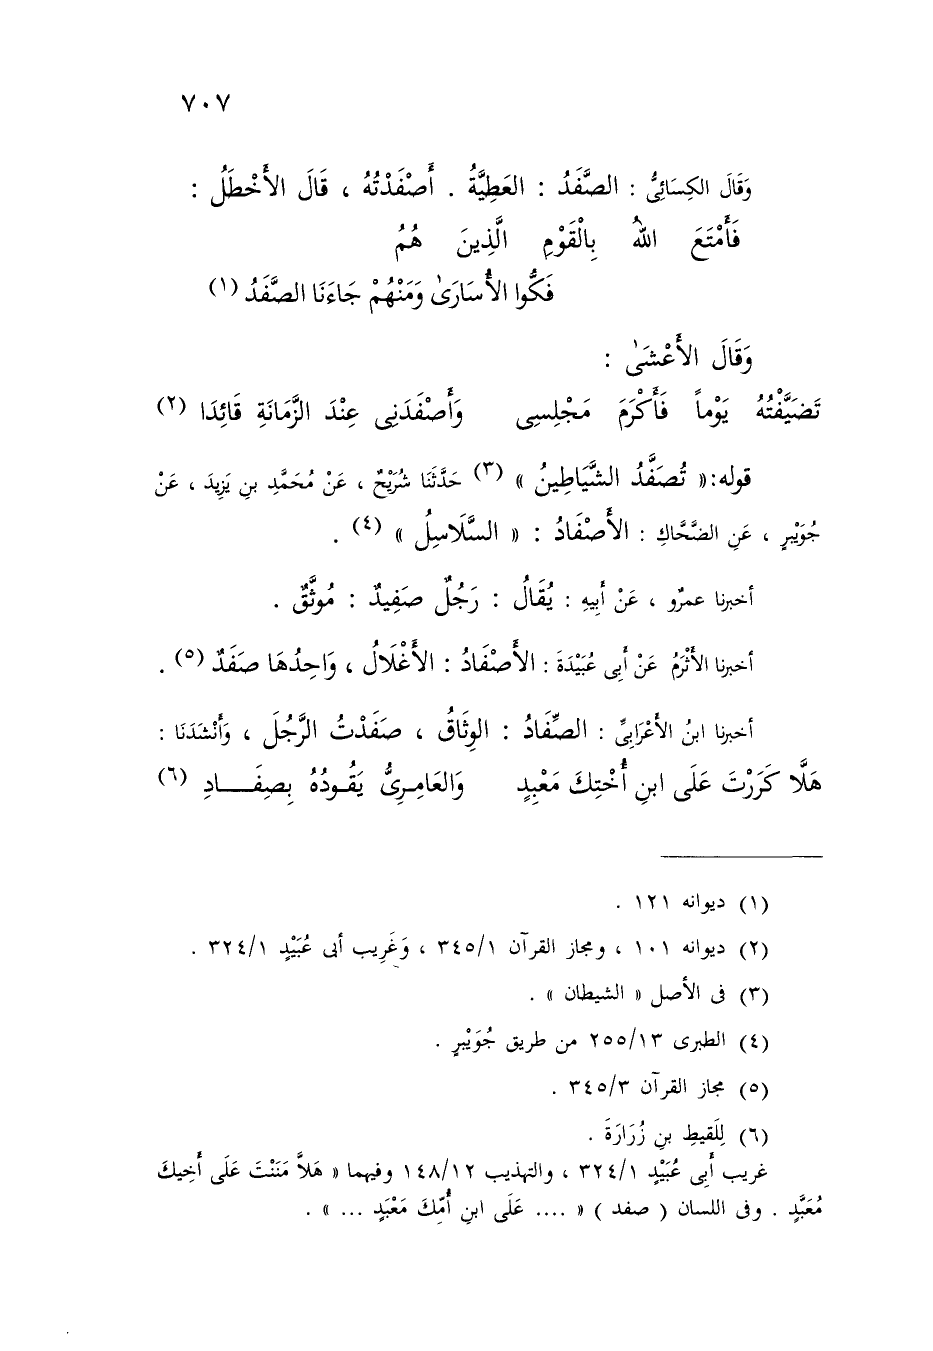 ٧٠٧
وَقَالَ الكِسَائِىُّ : الصَّفَدُ : العَطِيَّةُ . أَصْفَدْتُهُ ، قَالَ الأَخْطَلُ :
فَأَمْتَعَ اللهُ بِالْقَوْمِ الَّذِينَ هُمُ
فَكُّوا الأُسَارَىٰ وَمَنْهُمْ جَاءَنَا الصَّفَدُ (١)
وَقَالَ الأَعْشَىٰ :
تَضَيَّفْتُهُ يَوْماً فَأَكْرَمَ مَجْلِسِى وَأَصْفَدَنِى عِنْدَ الزَّمَانَةِ قَائِدَا (٢)
قوله: « تُصَفَّدُ الشَّيَاطِينُ » (٣) حَدَّثَنَا شُرَيْحٌ ، عَنْ مُحَمَّدِ بنِ يَزِيدَ ، عَنْ
جُوَيْبِرٍ ، عَنِ الضَّحَّاكِ : الأَصْفَادُ : « السَّلَاسِلُ » (٤) .
أخبرنا عمرٌو ، عَنْ أبِيهِ : يُقَالُ : رَجُلٌ صَفِيدٌ : مُوثَّقٌ .
أخبرنا الأَثْرَمُ عَنْ أبِى عُبَيْدَةَ : الأَصْفَادُ : الأَغْلَالُ ، وَاحِدُهَا صَفَدٌ (٥) .
أخبرنا ابنُ الأَعْرَابِىِّ : الصِّفَادُ : الوِثَاقُ ، صَفَدْتُ الرَّجُلَ ، وَأَنْشَدَنَا :
هَلَّا كَرَرْتَ عَلَى ابنِ أُخْتِكَ مَعْبِدٍ وَالعَامِرِىُّ يَقُودُهُ بِصِفَـــادِ (٦)
(١) ديوانه ١٢١ .
(٢) ديوانه ١٠١ ، ومجاز القرآن ٣٤٥/١ ، وَغَرِيب أبى عُبَيْدٍ ٣٢٤/١ .
(٣) فى الأصل « الشيطان » .
(٤) الطبرى ٢٥٥/١٣ من طريق جُوَيْبرٍ .
(٥) مجاز القرآن ٣٤٥/٣ .
(٦) لِلَقيطِ بنِ زُرَارَةَ .
غريب أَبِى عُبَيْدٍ ٣٢٤/١ ، والتهذيب ١٤٨/١٢ وفيهما « هَلاَّ مَنَنْتَ عَلَى أَخِيكَ
مُعَبَّدٍ . وفى اللسان ( صفد ) « .... عَلَى ابنِ أُمِّكَ مَعْبَدٍ ... » .